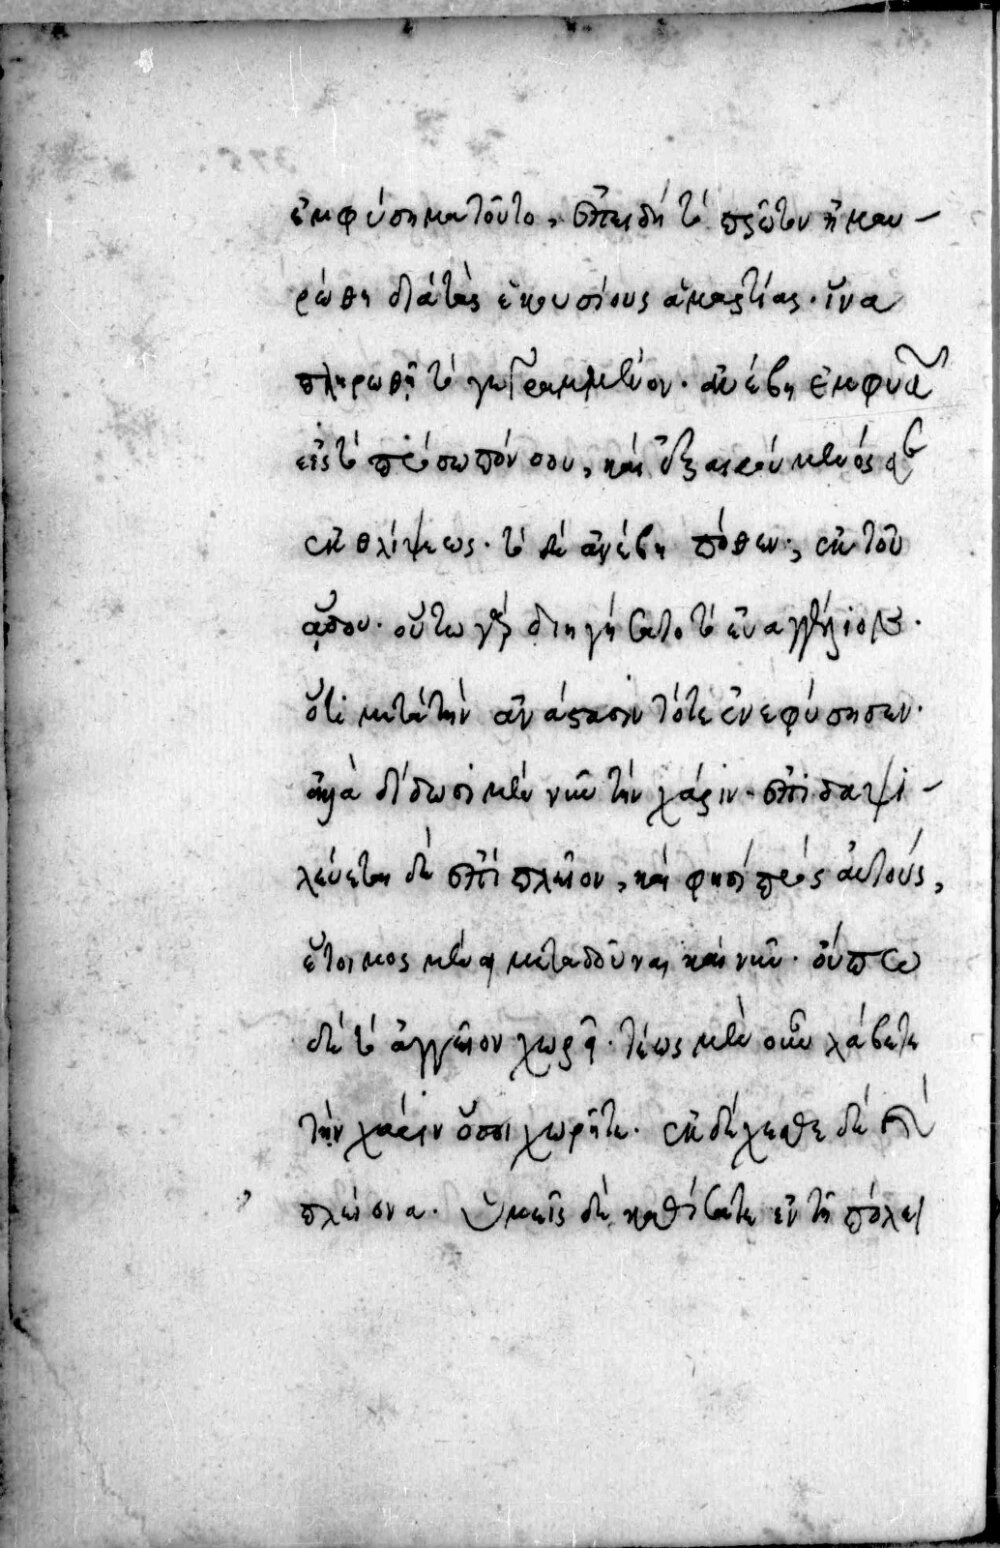 ἐμφύσημα τοῦτο, ἐπειδὴ τὸ πρῶτον ἠμαυ-
ρώθη διὰ τὰς ἑκουσίους ἁμαρτίας· ἵνα
πληρωθῇ τὸ γεγραμμένον· ἀνέβη ἐμφυσῶν
εἰς τὸ πρόσωπόν σου, καὶ ἐξαιρούμενός σε
ἐκ θλίψεως· τὸ δὲ ἀνέβη πόθεν; ἐκ τοῦ
ᾅδου· οὕτω γὰρ διηγήσατο τὸ εὐαγγέλιον·
ὅτι μετὰ τὴν ἀνάστασιν τότε ἐνεφύσησεν·
ἀλλὰ δίδωσι μὲν νῦν τὴν χάριν· ἐπιδαψι-
λεύεται δὲ ἐπὶ πλεῖον, καὶ φησὶ πρὸς αὐτοὺς,
ἕτοιμος μὲν εἰμι μεταδοῦναι καὶ νῦν· οὔπω
δὲ τὸ ἀγγεῖον χωρεῖ· τέως μὲν οὖν λάβετε
τὴν χάριν ὅσην χωρεῖτε· ἐκδέχεσθε δὲ ἔτι
πλείονα· ὑμεῖς δὲ καθίσατε ἐν τῇ πόλει